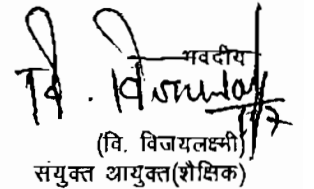 भवदीय
(वि. विजयलक्ष्मी)
संयुक्त आयुक्त(शैक्षिक)